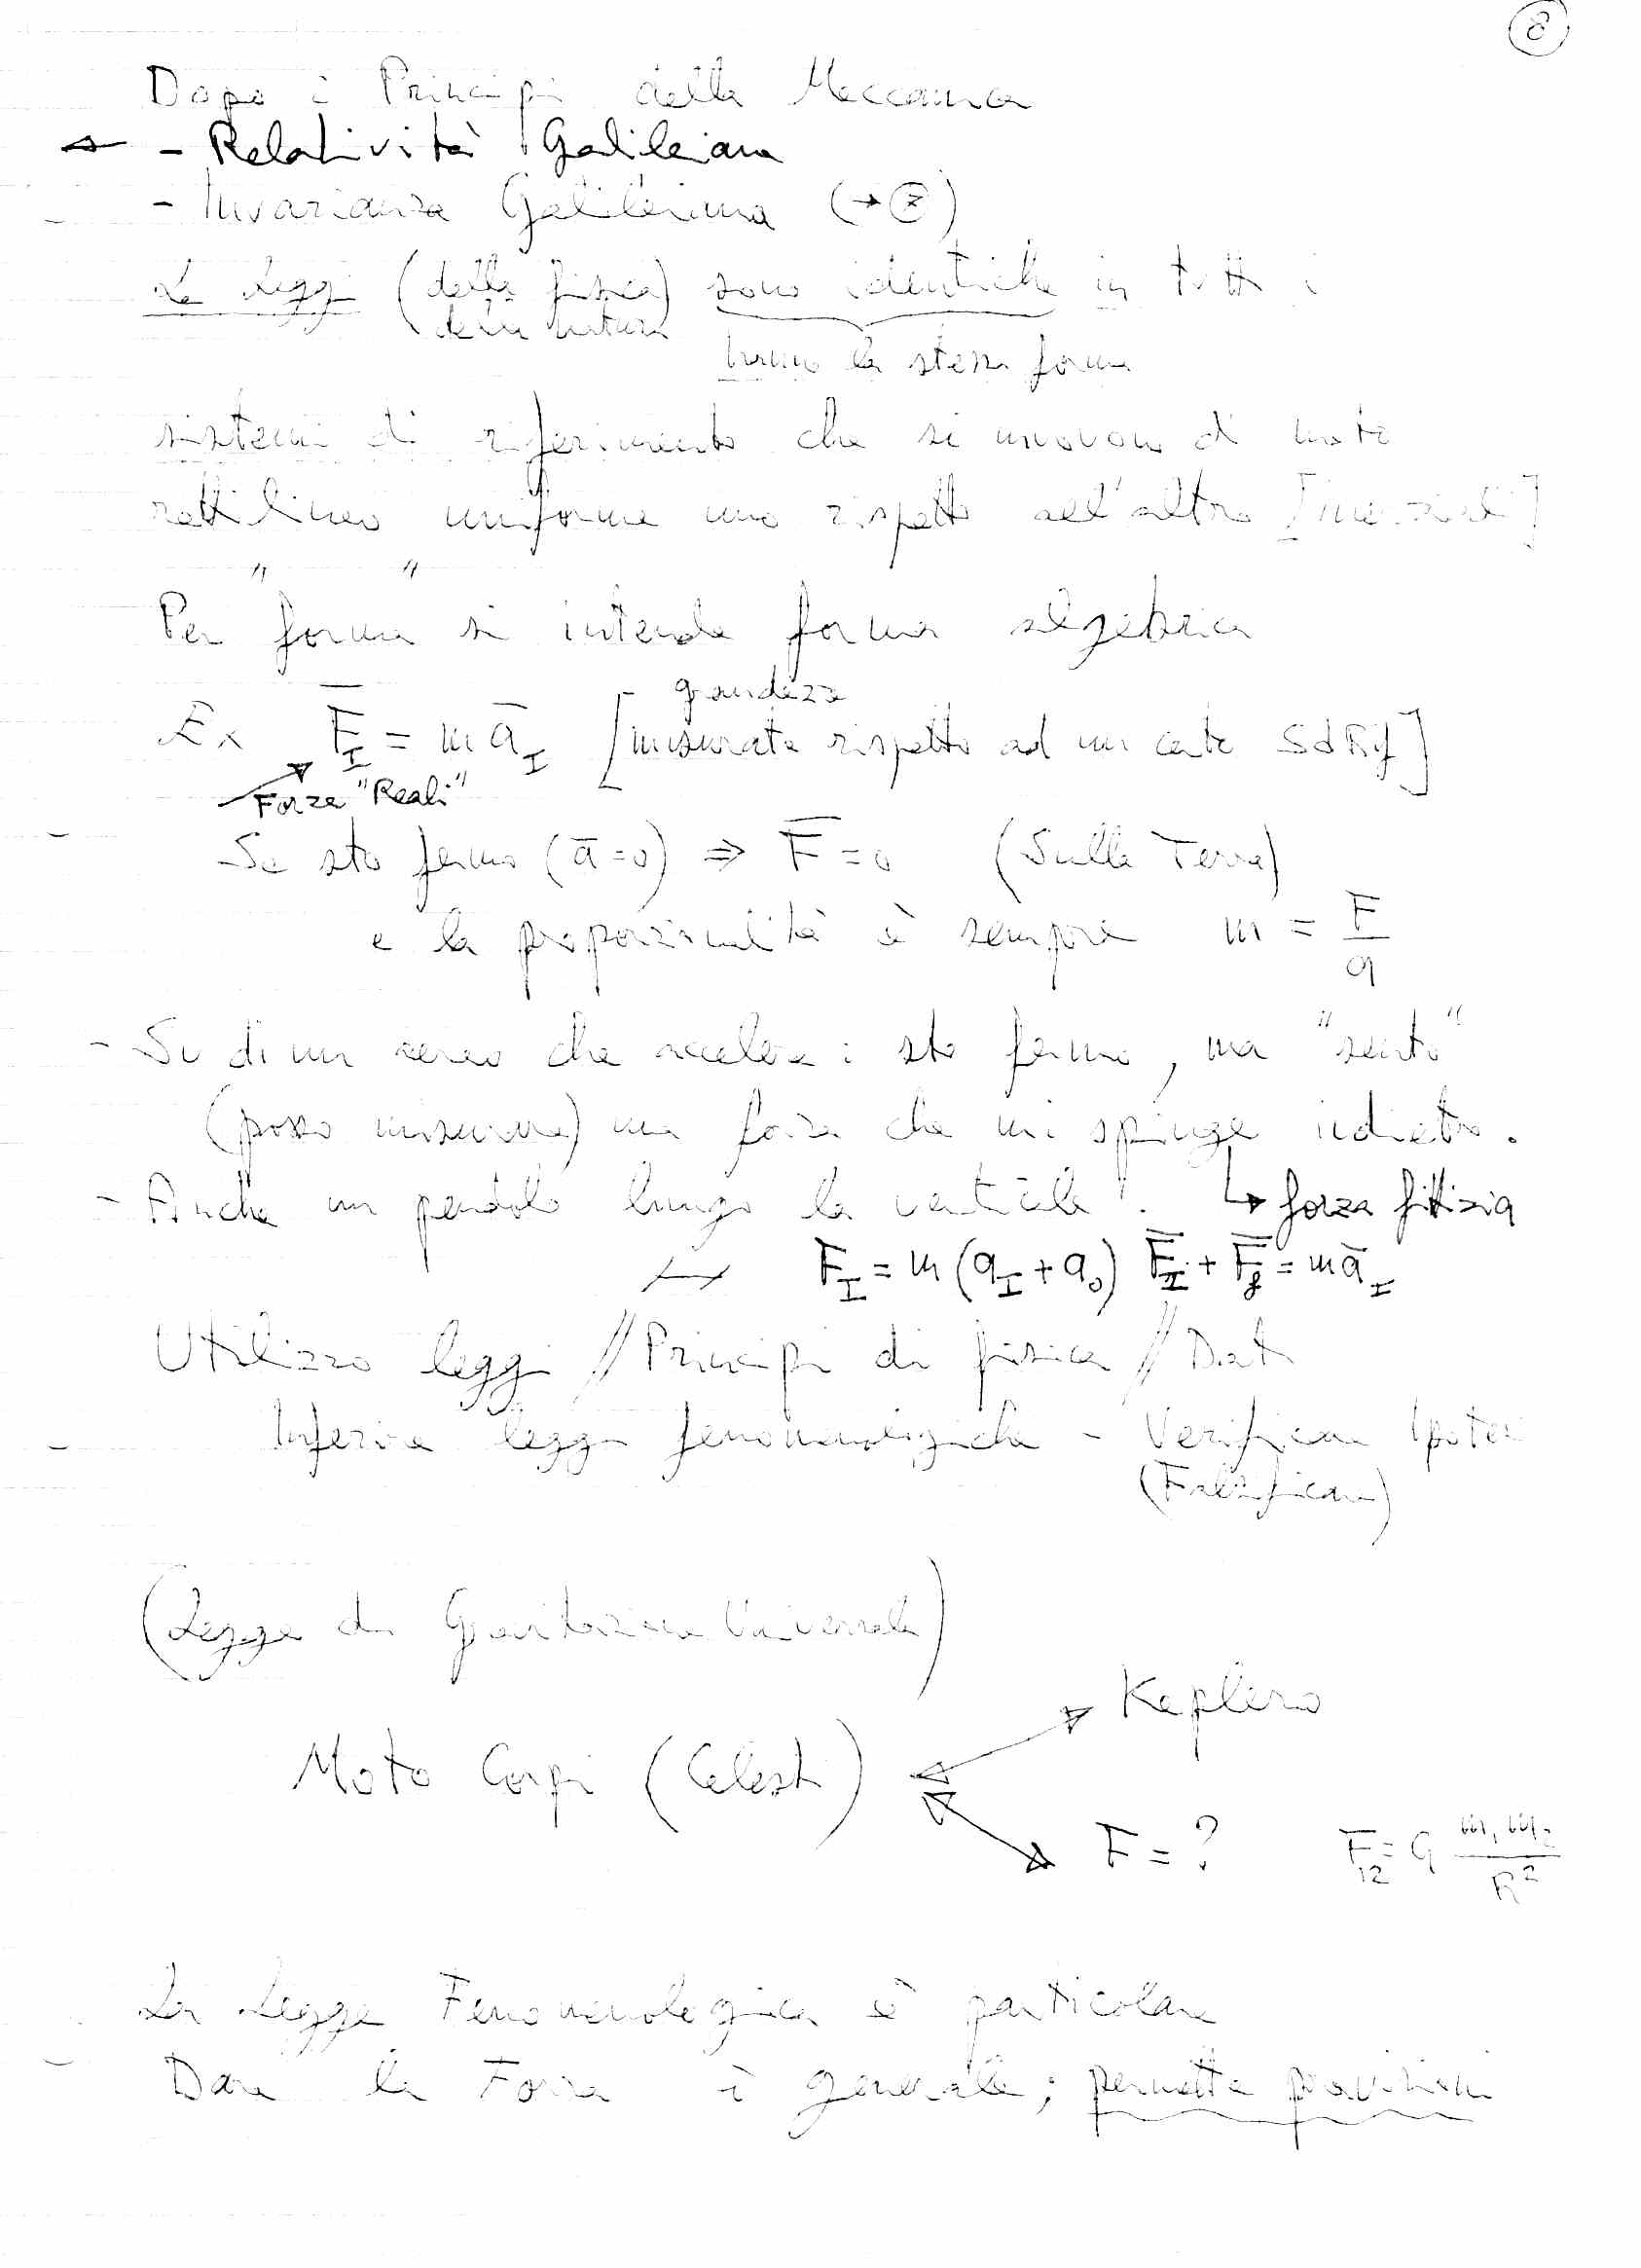 8
Dopo i Principi della Meccanica
- Relatività Galileiana
- Invarianza Galileiana (→ )
Le Leggi (della fisica) sono identiche in tutti i
della natura
hanno la stessa forma
sistemi di riferimento che si muovono di moto
rettilineo uniforme uno rispetto all'altro [inerziali]
Per "forma" si intende forma algebrica
grandezze
Ex F̅_I = m a̅_I [misurate rispetto ad un certo SdRif]
Forze "Reali"
Se sto fermo (a̅=0) ⇒ F̅=0 (Sulla Terra)
e la proporzionalità è sempre m = F/a
- Su di un aereo che accelera: sto fermo, ma "sento"
(posso misurare) una forza che mi spinge indietro.
- Anche un pendolo lungo la verticale! ↳ forza fittizia
F_I = m (a_I + a_0) F̅_I + F̅_f = m a̅_I
Utilizzo leggi // Principi di fisica // Dati
Inferire leggi fenomenologiche - Verificare Ipotesi
(Falsificare)
(Legge di Gravitazione Universale)
Keplero
Moto Corpi (Celesti)
F = ? F_12 = G m_1 m_2 / R^2
La Legge Fenomenologica è particolare
Dare la Forza è generale; permette previsioni